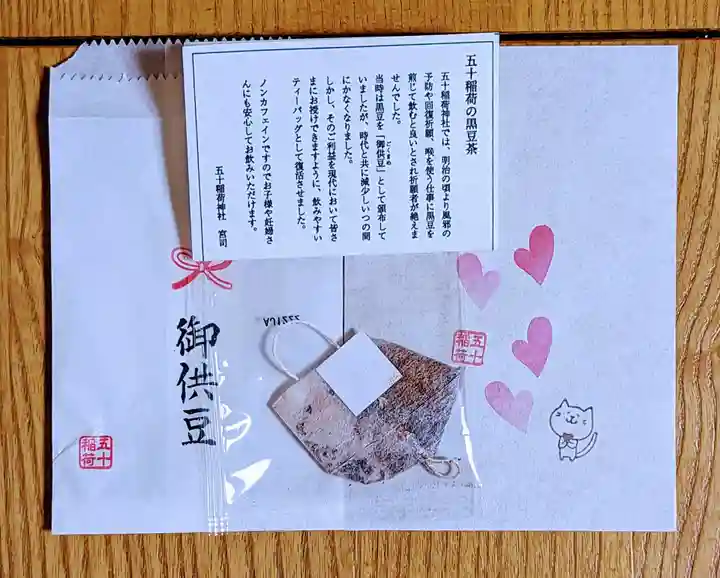 五十稲荷の黒豆茶
五十稲荷神社では、明治の頃より風邪の
予防や回復祈願、喉を使う仕事に黒豆を
煎じて飲むと良いとされ祈願者が絶えま
せんでした。
当時は黒豆を「御供豆」として頒布して
ごくまめ
いましたが、時代と共に減少しいつの間
にかなくなりました。
しかし、そのご利益を現代において皆さ
まにお授けできますように、飲みやすい
ティーバッグとして復活させました。
ノンカフェインですのでお子様や妊婦さ
んにも安心してお飲みいただけます。
五十稲荷神社 宮司
御供豆
五十
稲荷
五十
稲荷